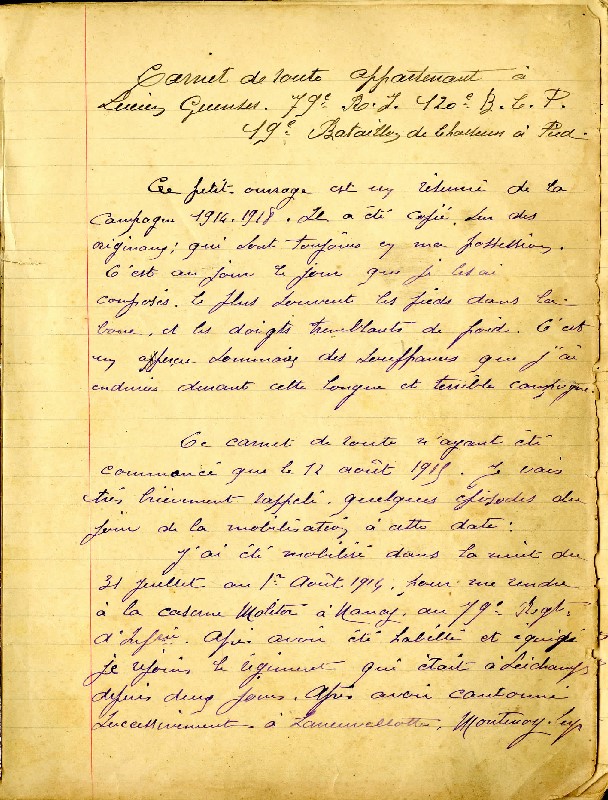 Carnet de route appartenant à
Lucien 79e R. I. 120e B. C. P.
49e Bataillon de Chasseurs à Pied.
Ce petit ouvrage est un résumé de la
Campagne 1914-1918. Il a été copié, sur des
originaux; qui sont toujours en ma possession.
C'est au jour le jour que je les ai
composés. le plus souvent les pieds dans la
boue, et les doigts tremblants de froids. C'est
un apperçu sommaire des souffrances que j'ai
endurées durant cette longue et terrible campagne.
Ce carnet de route n'ayant été
commencé que le 12 août 1915. Je vais
très brièvement rappelé, quelques épisodes du
jour de la mobilisation à cette date:
J'ai été mobilisé dans la nuit du
31 Juillet au 1er Août 1914, pour me rendre
à la caserne Molitor à Nancy, au 79e Regt
d'Infrie. Après avoir été habillé et équipé
je rejoins le régiment qui était à Leichamps
depuis deux jours. Après avoir cantonné
successivement à Laneuvellotte, Montenoy,